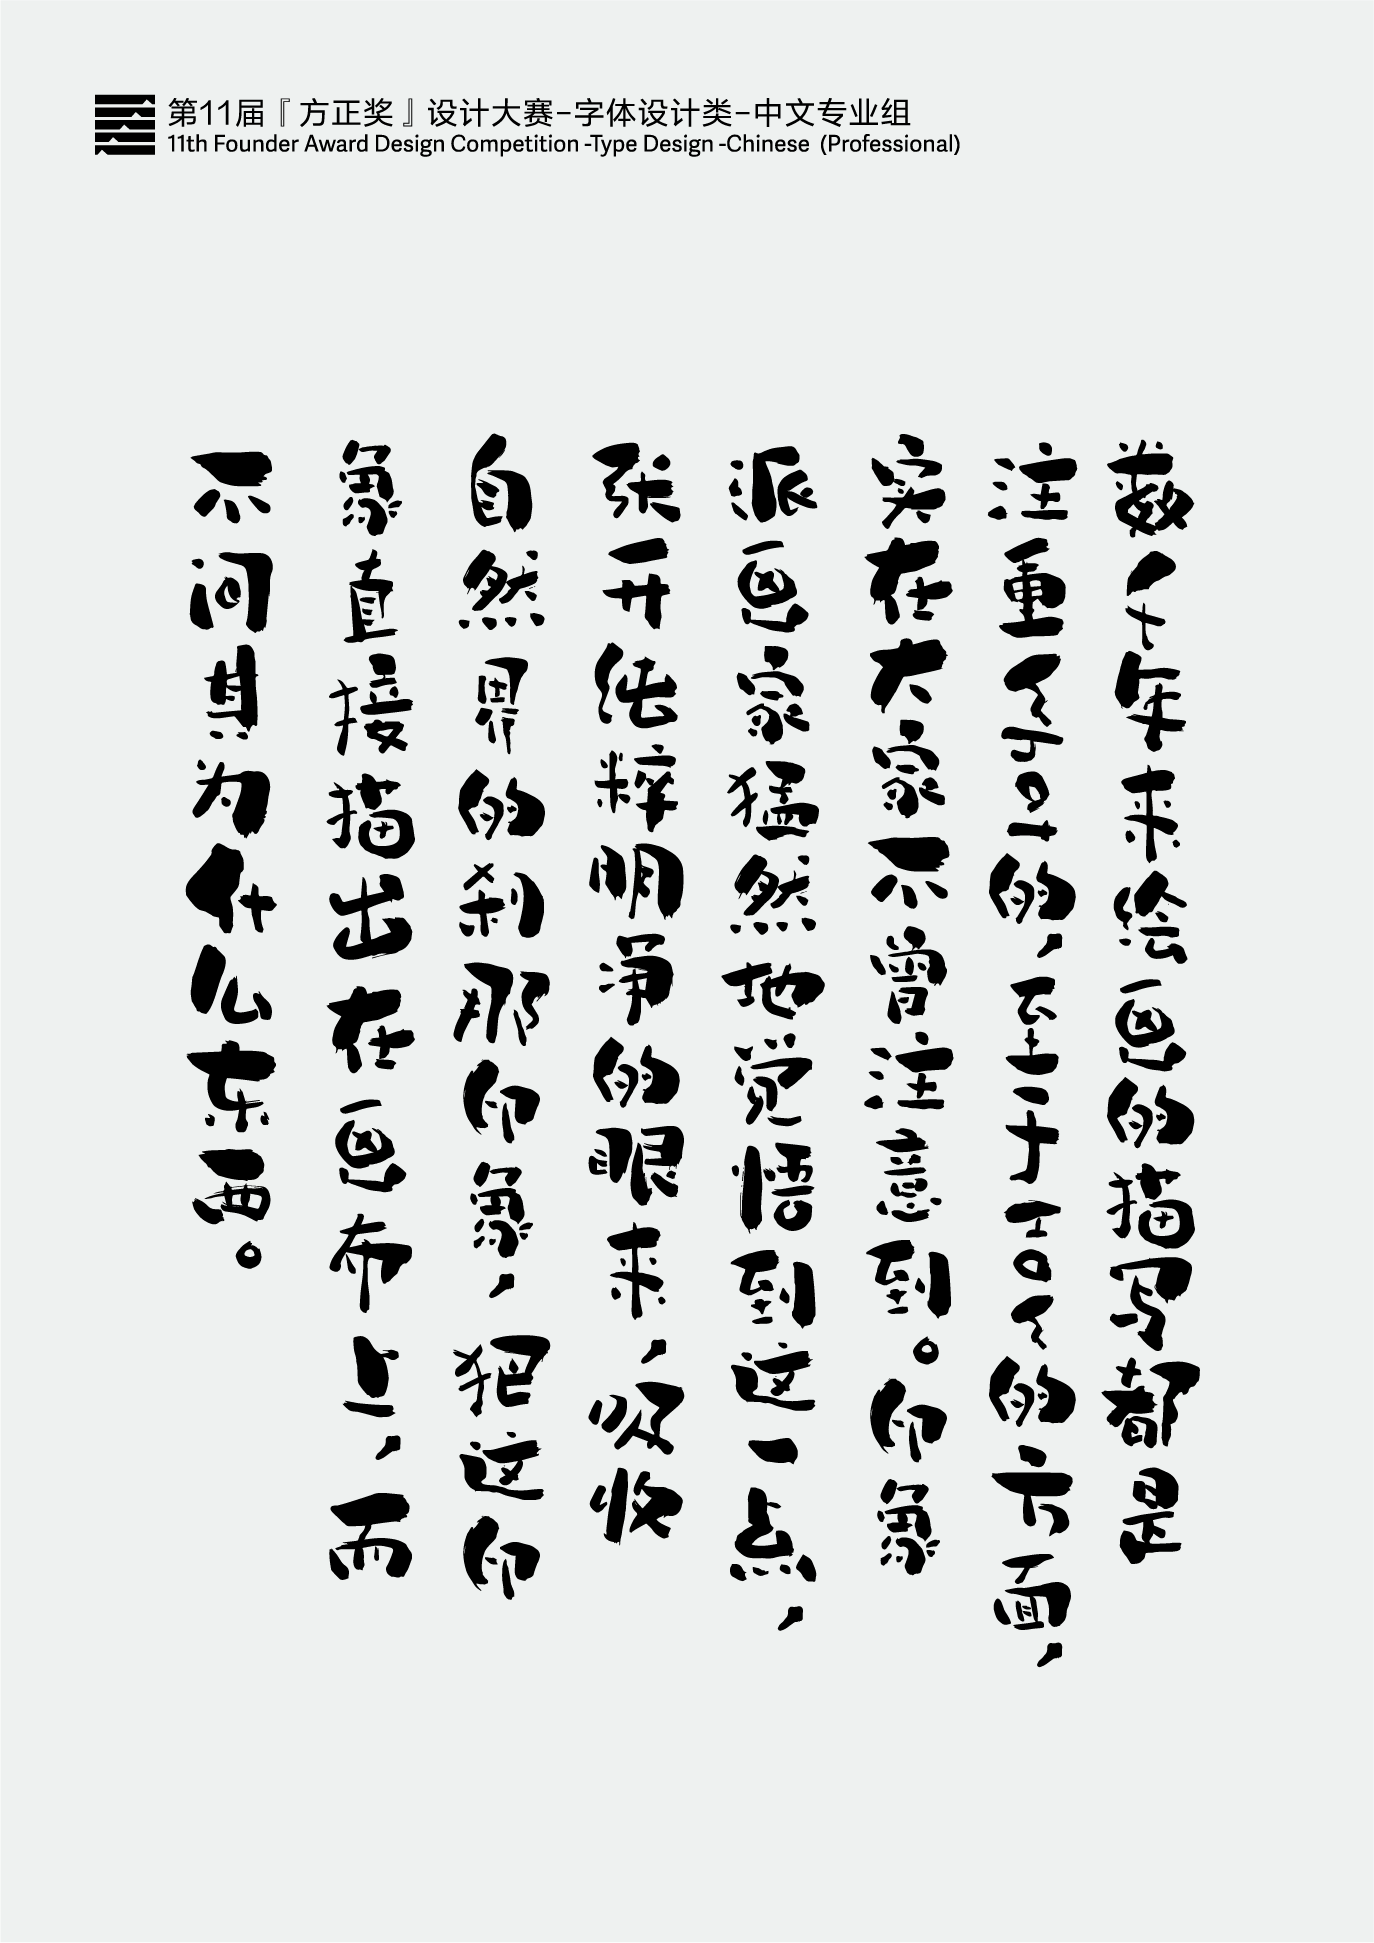 第11届『方正奖』设计大赛-字体设计类-中文专业组
11th Founder Award Design Competition -Type Design -Chinese (Professional)
数千年来绘画的描写都是
注重的，至于的方面，
实在大家不曾注意到。印象
派画家猛然地觉悟到这一点，
张开纯粹明净的眼来，吸收
自然界的刹那印象，把这印
象直接描出在画布上，而
不问其为什么东西。